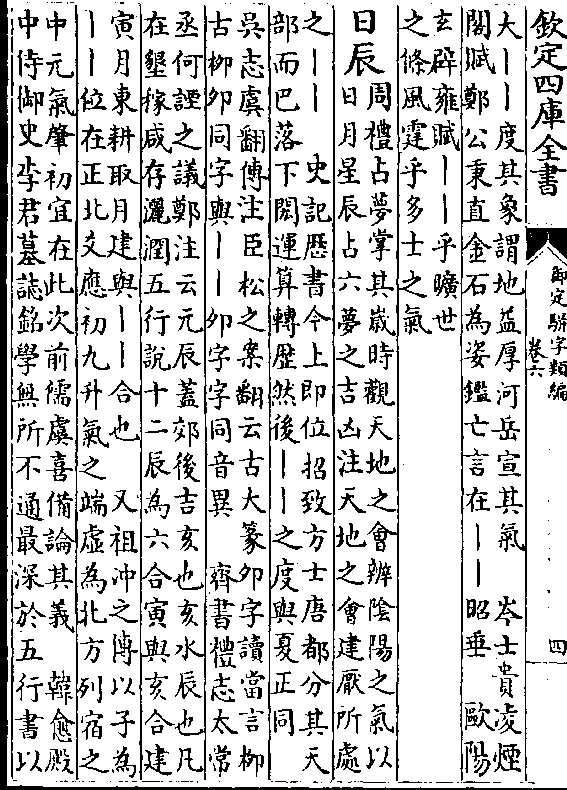 欽定四庫全書
御定駢字類編
卷六
四
大丨丨度其象謂地益厚河岳宣其氣　岑士貴凌煙
閣賦鄭公秉直金石為姿鑑亡言在丨丨昭垂　歐陽
玄辟雍賦丨丨乎曠世
之條風霆乎多士之氣
日辰
周禮占夢掌其嵗時觀天地之會辨隂陽之氣以
日月星辰占六夢之吉凶注天地之會建厭所處
之丨丨　史記厯書今上即位招致方士唐都分其天
部而巴落下閎運算轉歴然後丨丨之度與夏正同
吳志虞翻傳注臣松之案翻云古大篆卯字讀當言柳
古柳卯同字與丨丨卯字字同音異　齊書禮志太常
丞何諲之議鄭注云元辰蓋郊後吉亥也亥水辰也凡
在墾稼咸存灑潤五行說十二辰為六合寅與亥合建
寅月東耕取月建與丨丨合也　又祖沖之傳以子為
丨丨位在正北爻應初九升氣之端虛為北方列宿之
中元氣肇初宜在此次前儒虞喜備論其義　韓愈殿
中侍御史李君墓誌銘學無所不通最深於五行書以